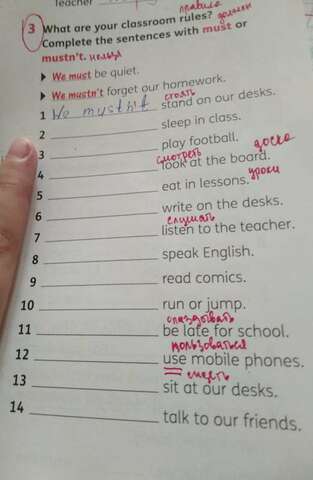 Teacher
правила
3 What are your classroom rules? должен
Complete the sentences with must or
mustn't. нельзя
▶ We must be quiet.
▶ We mustn't forget our homework.
стоять
1 We mustn't stand on our desks.
2 sleep in class.
3 play football.
смотреть доска
4 look at the board.
5 eat in lessons. уроки
6 write on the desks.
слушать
7 listen to the teacher.
8 speak English.
9 read comics.
10 run or jump.
опаздывать
11 be late for school.
пользоваться
12 use mobile phones.
сидеть
13 sit at our desks.
14 talk to our friends.